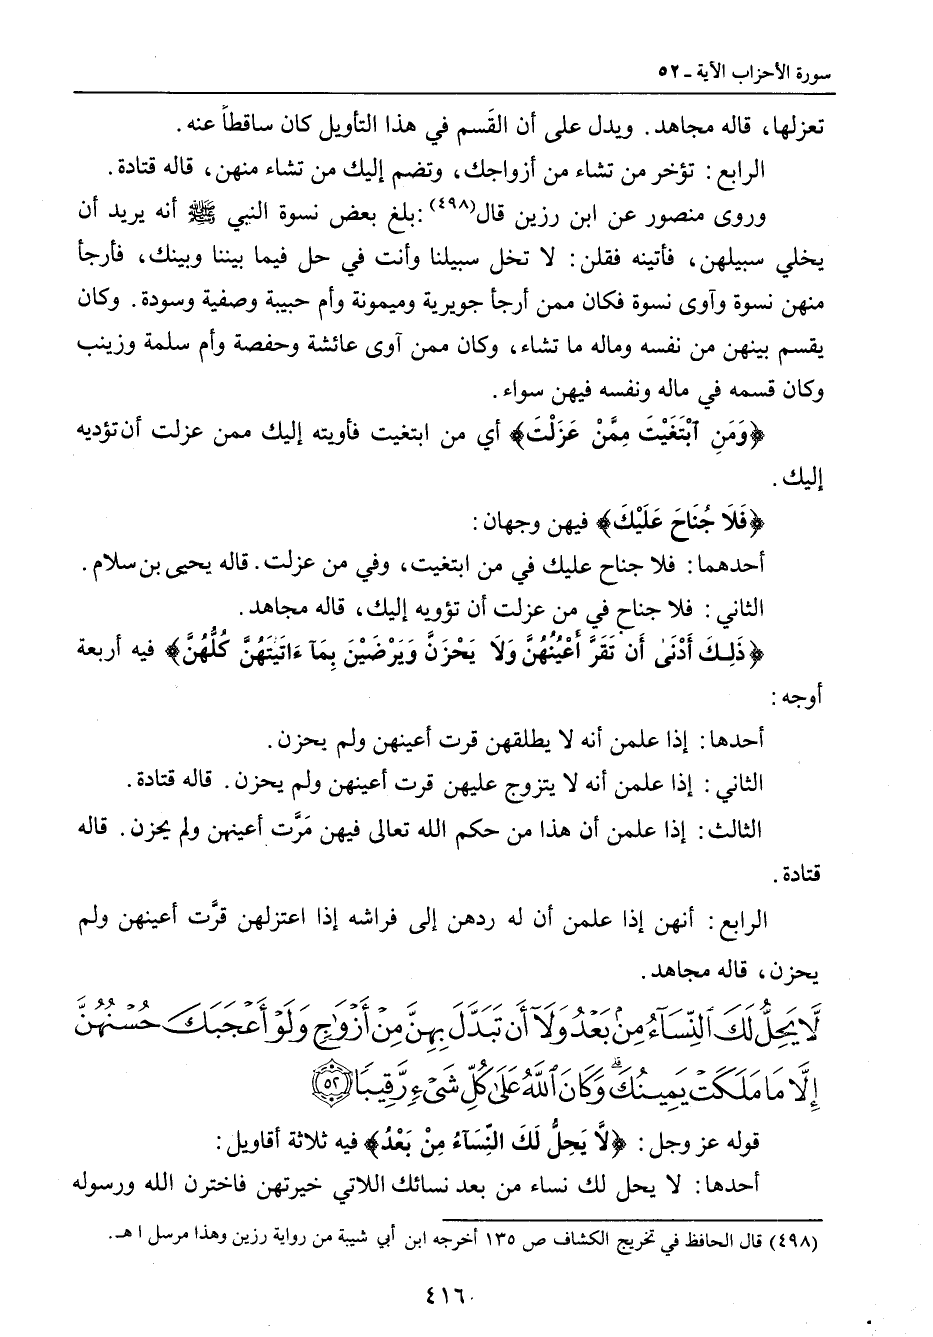 سورة الأحزاب الآية ـ ٥٢
تعزلها، قاله مجاهد. ويدل على أن القَسم في هذا التأويل كان ساقطاً عنه.
الرابع: تؤخر من تشاء من أزواجك، وتضم إليك من تشاء منهن، قاله قتادة.
وروى منصور عن ابن رزين قال(٤٩٨): بلغ بعض نسوة النبي ﷺ أنه يريد أن
يخلي سبيلهن، فأتينه فقلن: لا تخل سبيلنا وأنت في حل فيما بيننا وبينك، فأرجأ
منهن نسوة وآوى نسوة فكان ممن أرجأ جويرية وميمونة وأم حبيبة وصفية وسودة. وكان
يقسم بينهن من نفسه وماله ما تشاء، وكان ممن آوى عائشة وحفصة وأم سلمة وزينب
وكان قسمه في ماله ونفسه فيهن سواء.
﴿وَمَنِ ٱبْتَغَيْتَ مِمَّنْ عَزَلْتَ﴾ أي من ابتغيت فأويته إليك ممن عزلت أن تؤديه
إليك.
﴿فَلَا جُنَاحَ عَلَيْكَ﴾ فيهن وجهان:
أحدهما: فلا جناح عليك في من ابتغيت، وفي من عزلت. قاله يحيى بن سلام.
الثاني: فلا جناح في من عزلت أن تؤويه إليك، قاله مجاهد.
﴿ذَٰلِكَ أَدْنَىٰ أَن تَقَرَّ أَعْيُنُهُنَّ وَلَا يَحْزَنَّ وَيَرْضَيْنَ بِمَآ ءَاتَيْتَهُنَّ كُلُّهُنَّ﴾ فيه أربعة
أوجه:
أحدها: إذا علمن أنه لا يطلقهن قرت أعينهن ولم يحزن.
الثاني: إذا علمن أنه لا يتزوج عليهن قرت أعينهن ولم يحزن. قاله قتادة.
الثالث: إذا علمن أن هذا من حكم الله تعالى فيهن مَرَّت أعينهن ولم يحزن. قاله
قتادة.
الرابع: أنهن إذا علمن أن له ردهن إلى فراشه إذا اعتزلهن قرَّت أعينهن ولم
يحزن، قاله مجاهد.
لَّا يَحِلُّ لَكَ ٱلنِّسَآءُ مِنۢ بَعْدُ وَلَآ أَن تَبَدَّلَ بِهِنَّ مِنْ أَزْوَٰجٍ وَلَوْ أَعْجَبَكَ حُسْنُهُنَّ
إِلَّا مَا مَلَكَتْ يَمِينُكَ ۗ وَكَانَ ٱللَّهُ عَلَىٰ كُلِّ شَىْءٍ رَّقِيبًا ﴿٥٢﴾
قوله عز وجل: ﴿لَّا يَحِلُّ لَكَ النِّسَآءُ مِنْ بَعْدُ﴾ فيه ثلاثة أقاويل:
أحدها: لا يحل لك نساء من بعد نسائك اللاتي خيرتهن فاخترن الله ورسوله
(٤٩٨) قال الحافظ في تخريج الكشاف ص ١٣٥ أخرجه ابن أبي شيبة من رواية رزين وهذا مرسل ا هـ.
٤١٦